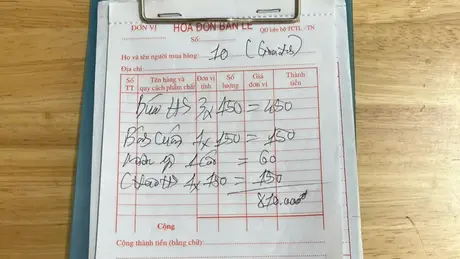 ĐƠN VỊ HÓA ĐƠN BÁN LẺ QĐ liên bộ TCTL - TN
Số:
Họ và tên người mua hàng: 10
Địa chỉ:
Số TT Tên hàng và quy cách phẩm chất Đơn vị tính Số lượng Giá đơn vị Thành tiền
Bún HS 3 x 150 = 450
Bông Cuốn 1 x 150 = 150
= 60
1 x 150 = 150
810.000đ
Cộng
Cộng thành tiền (bằng chữ):